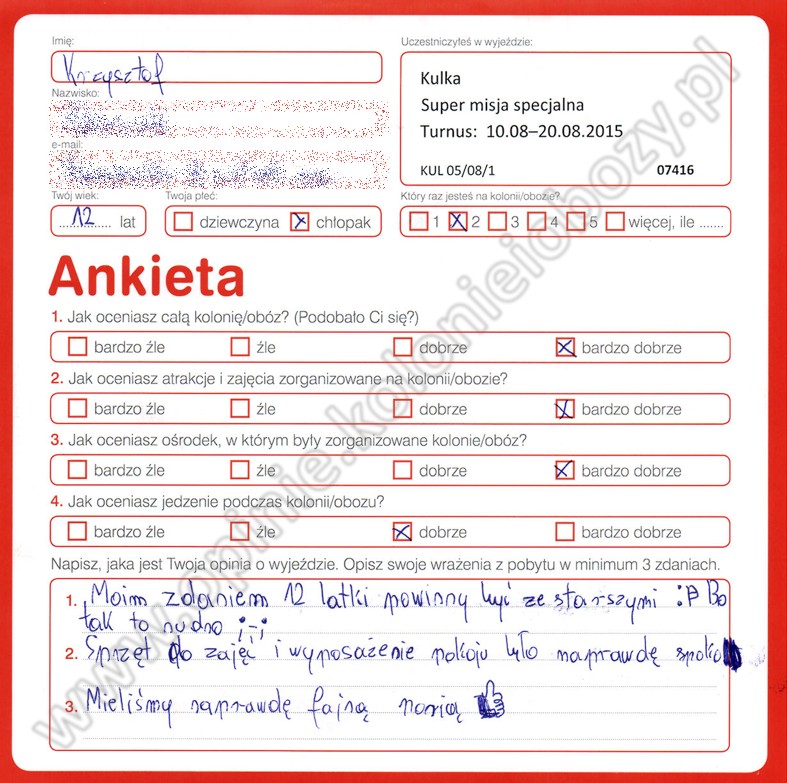 Imię:
Krzysztof
Nazwisko:
e-mail:
Twój wiek:
12 lat
Twoja płeć:
dziewczyna chłopak
Uczestniczyłeś w wyjeździe:
Kulka
Super misja specjalna
Turnus: 10.08–20.08.2015
KUL 05/08/1 07416
Który raz jesteś na kolonii/obozie?
1 2 3 4 5 więcej, ile .......
Ankieta
1. Jak oceniasz całą kolonię/obóz? (Podobało Ci się?)
bardzo źle źle dobrze bardzo dobrze
2. Jak oceniasz atrakcje i zajęcia zorganizowane na kolonii/obozie?
bardzo źle źle dobrze bardzo dobrze
3. Jak oceniasz ośrodek, w którym były zorganizowane kolonie/obóz?
bardzo źle źle dobrze bardzo dobrze
4. Jak oceniasz jedzenie podczas kolonii/obozu?
bardzo źle źle dobrze bardzo dobrze
Napisz, jaka jest Twoja opinia o wyjeździe. Opisz swoje wrażenia z pobytu w minimum 3 zdaniach.
1. Moim zdaniem 12 latki powinny być ze starszymi :P Bo
tak to nudno ;-;
2. Sprzęt do zajęć i wyposażenie pokoju było naprawdę spoko
3. Mieliśmy naprawdę fajną panią
www.opinie.kolonieiobozy.pl